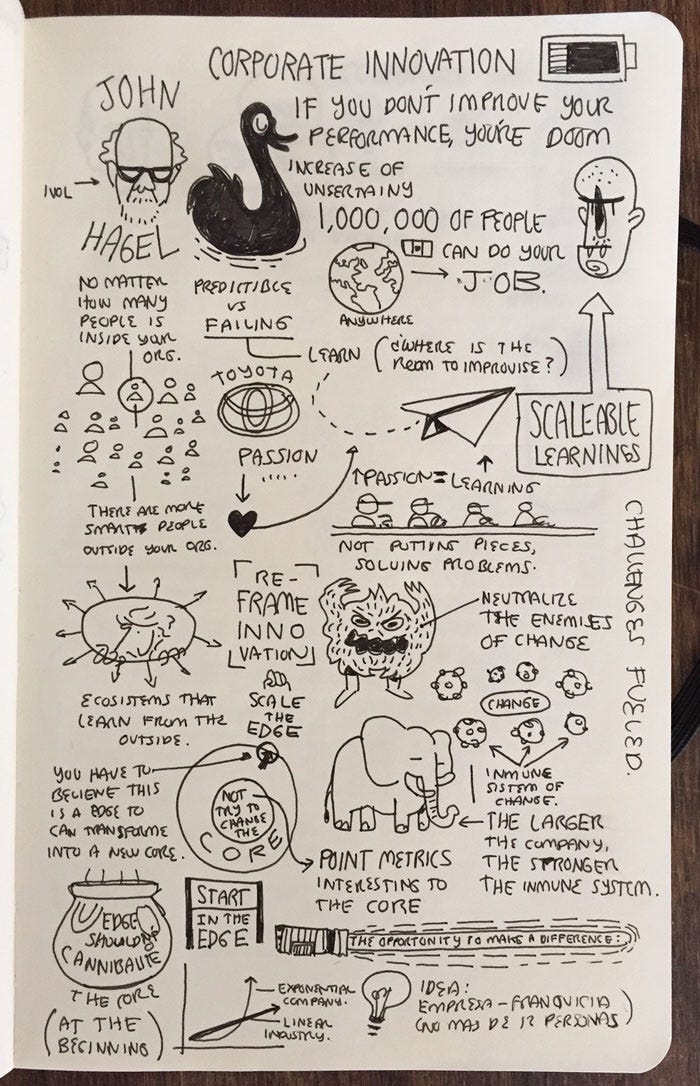 CORPORATE INNOVATION
JOHN
HAGEL
1VOL
IF YOU DON'T IMPROVE YOUR
PERFORMANCE, YOU'RE DOOM
INCREASE OF
UNSERTAINY
1,000,000 OF PEOPLE
CAN DO YOUR
JOB.
ANYWHERE
NO MATTER
HOW MANY
PEOPLE IS
INSIDE YOUR
ORG.
PREDICTIBLE
VS
FAILING
LEARN
(¿WHERE IS THE
ROOM TO IMPROVISE?)
TOYOTA
PASSION
SCALEABLE
LEARNINGS
↑PASSION = LEARNING
THERE ARE MORE
SMART PEOPLE
OUTSIDE YOUR ORG.
NOT PUTTING PIECES,
SOLVING PROBLEMS.
CHALLENGES FUELED.
RE-
FRAME
INNO
VATION
NEUTRALIZE
THE ENEMIES
OF CHANGE
ECOSISTEMS THAT
LEARN FROM THE
OUTSIDE.
SCALE
THE
EDGE
CHANGE
INMUNE
SISTEM OF
CHANGE.
YOU HAVE TO
BELIEVE THIS
IS A EDGE TO
CAN TRANSFORME
INTO A NEW CORE.
NOT
TRY TO
CHANGE
THE
CORE
THE LARGER
THE COMPANY,
THE STRONGER
THE INMUNE SYSTEM.
POINT METRICS
INTERESTING TO
THE CORE
EDGE
SHOULD
CANNIBALITE
THE CORE
(AT THE
BEGINNING)
START
IN THE
EDGE
THE OPORTUNITY TO MAKE A DIFFERENCE:
EXPONENTIAL
COMPANY.
LINEAR
INDUSTRY.
IDEA:
EMPRESA-FRANQUICIA
(NO MAS DE 12 PERSONAS)